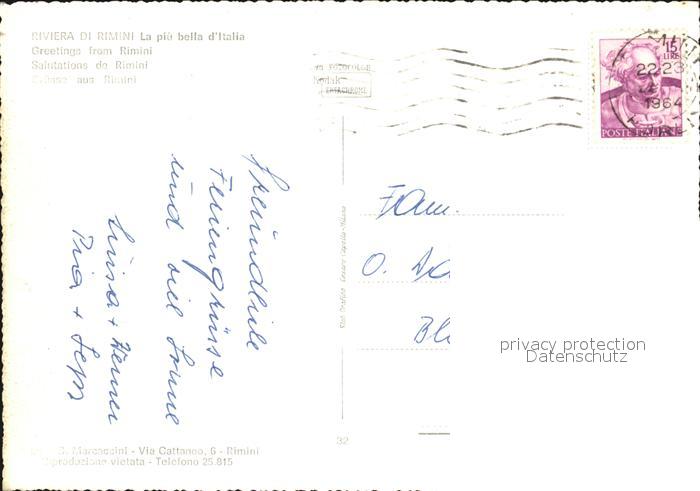 RIVIERA DI RIMINI La più bella d'Italia
Greetings from Rimini
Salutations de Rimini
Grüsse aus Rimini
Kodak
EKTACHROME
15
LIRE
22-23
1964
POSTE ITALIANE
Freundliche
Feriengrüsse
und viel Sonne
Luisa + Werner
Pia + Sepp
Fam.
O.
Bl
privacy protection
Datenschutz
32
G. Marcaccini - Via Cattaneo, 6 - Rimini
Riproduzione vietata - Telefono 25.815